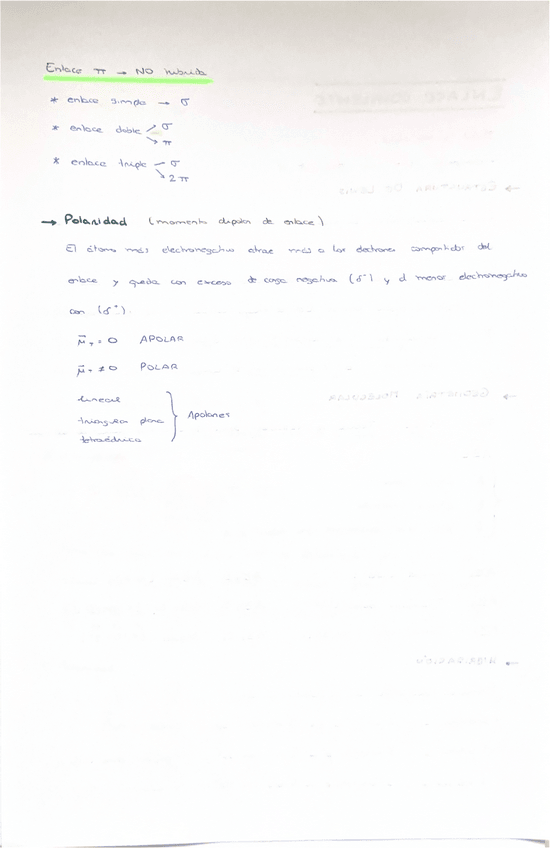 Enlace π → NO hibrida
* enlace simple → σ
* enlace doble ↗ σ
↘ π
* enlace triple — σ
↘ 2 π
→ Polaridad (momento dipolar de enlace)
El átomo más electronegativo atrae más a los electrones compartidos del
enlace y queda con exceso de carga negativa (δ⁻) y el menor electronegativo
con (δ⁺).
μ⃗ᴛ = 0 APOLAR
μ⃗ᴛ ≠ 0 POLAR
lineal
triangular plana } Apolares
tetraédrica